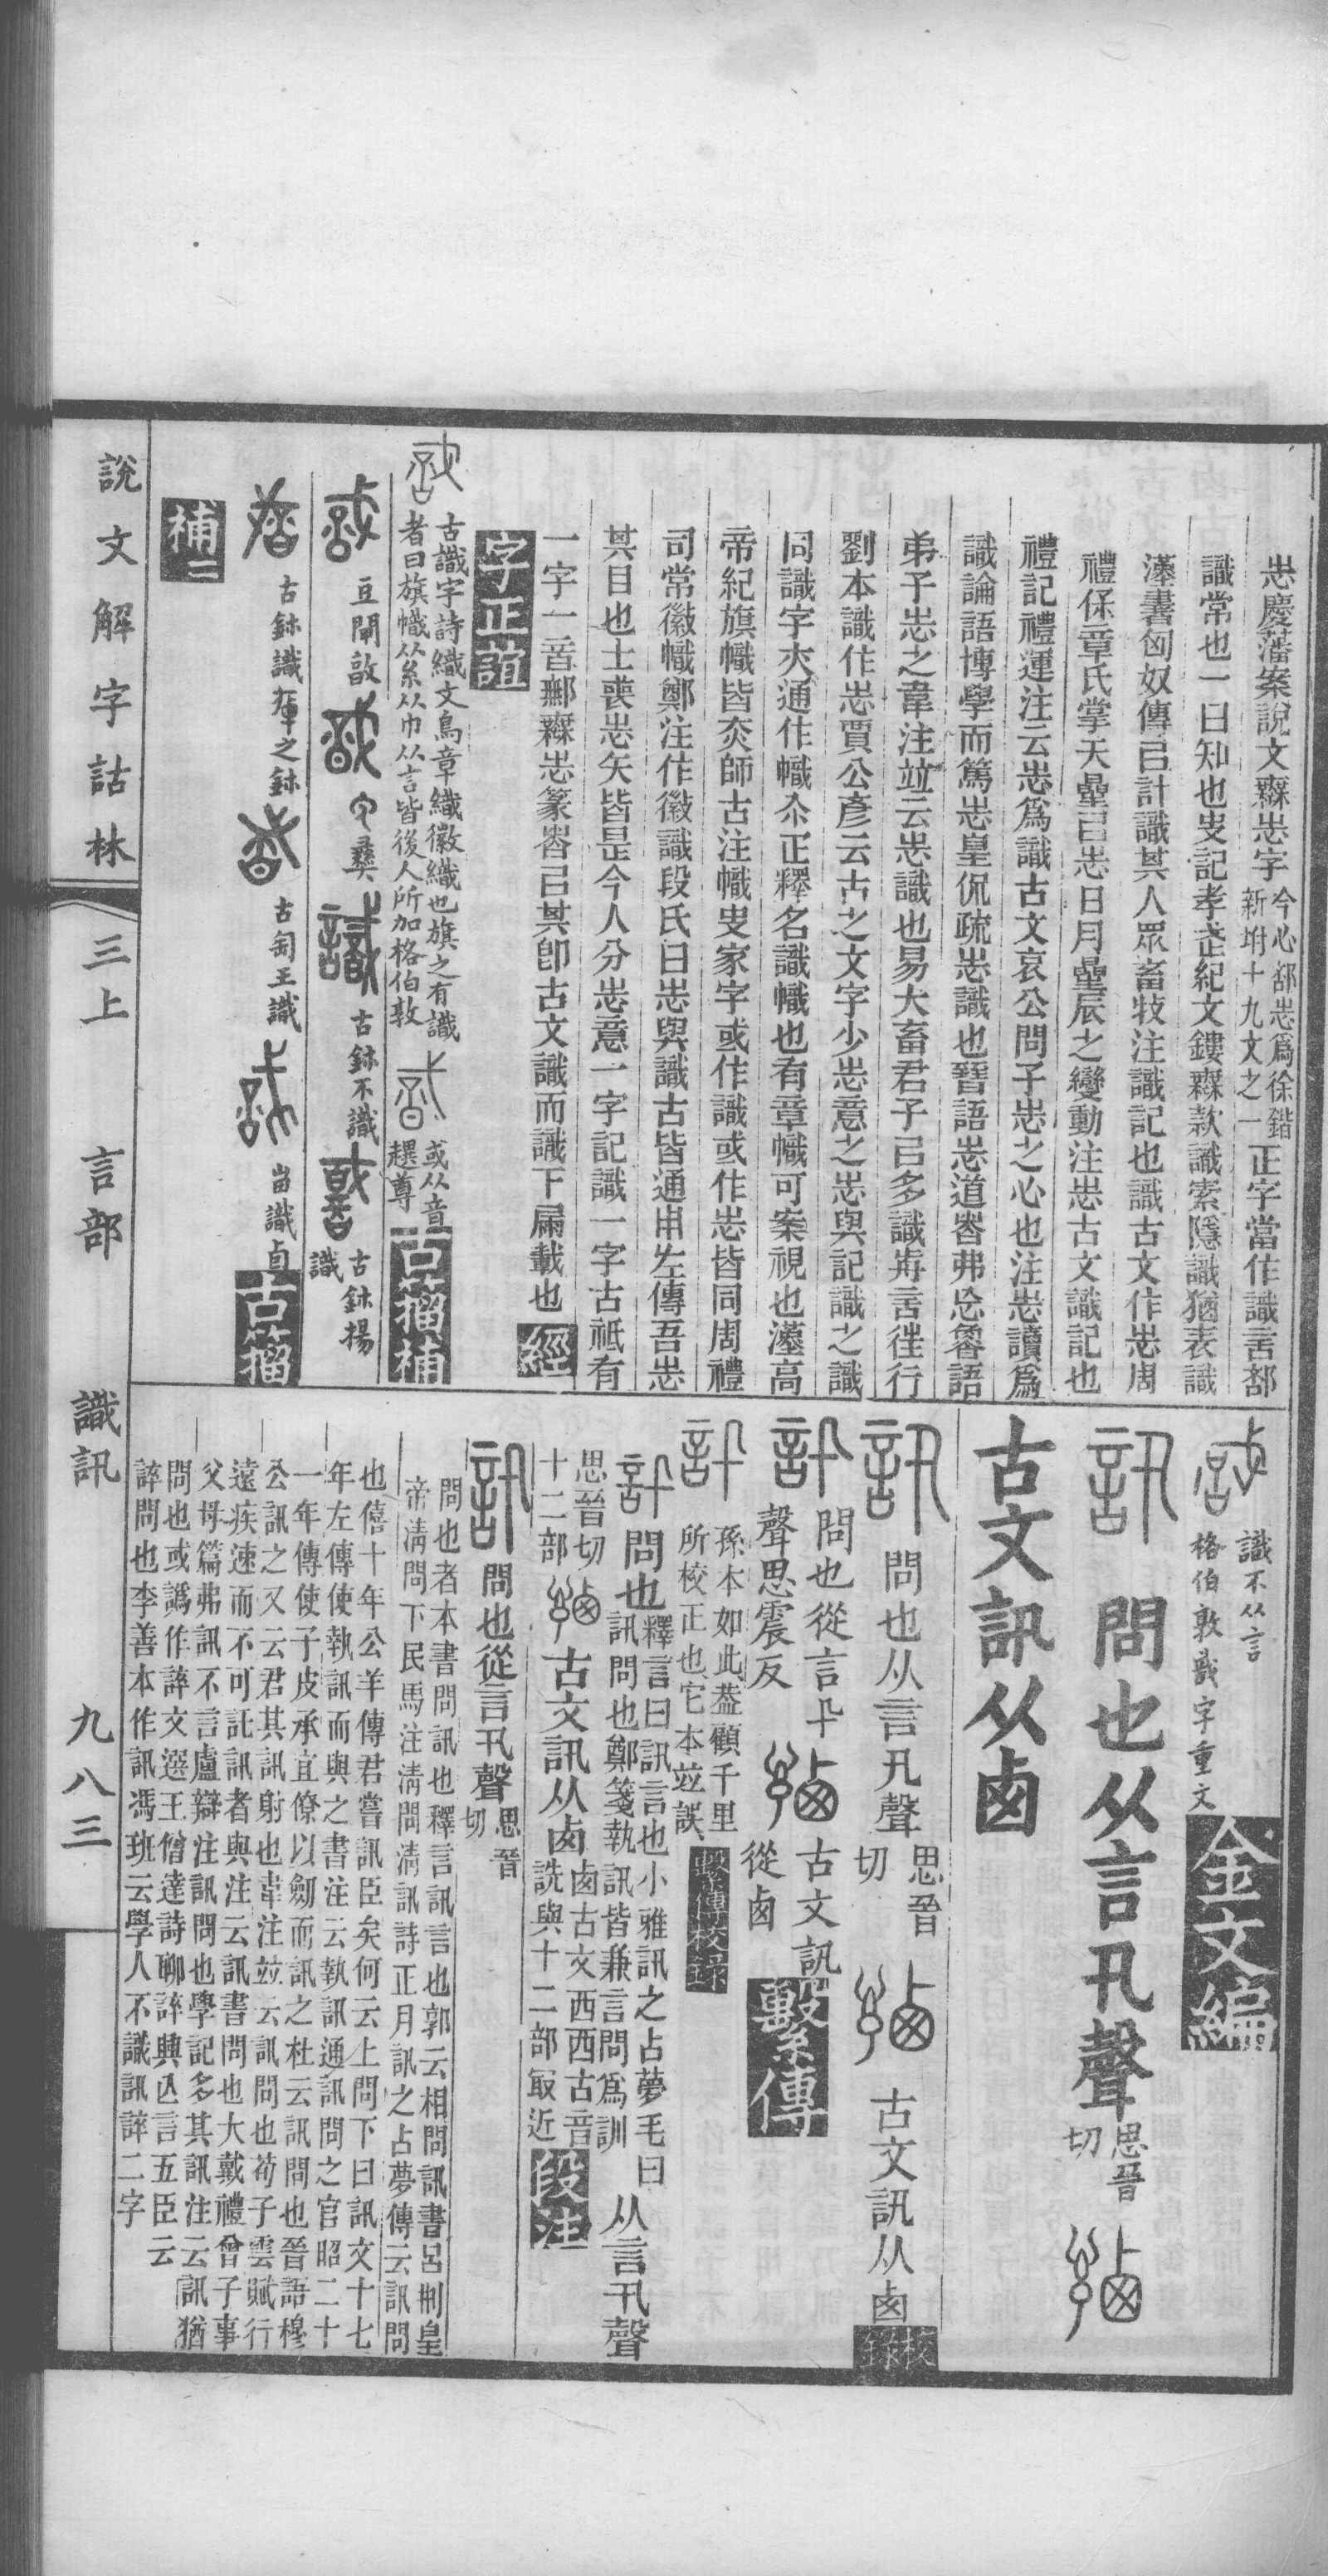 志慶藩案說文無志字
今心部志爲徐鍇
新坿十九文之一
正字當作識言部
識常也一曰知也史記孝武紀文鏤無款識索隱識猶表識
漢書匈奴傳㠯計識其人眾畜牧注識記也識古文作志周
禮保章氏掌天星㠯志日月星辰之變動注志古文識記也
禮記禮運注云志爲識古文哀公問子志之心也注志讀爲
識論語博學而篤志皇侃疏志識也晉語志道者弗忘魯語
弟子志之韋注竝云志識也易大畜君子㠯多識前言往行
劉本識作志賈公彥云古之文字少志意之志與記識之識
同識字亦通作幟亦正釋名識幟也有章幟可案視也漢高
帝紀旗幟皆赤師古注幟史家字或作識或作志皆同周禮
司常徽幟鄭注作徽識段氏曰志與識古皆通用左傳吾志
其目也士喪志矢皆是今人分志意一字記識一字古祗有
一字一音鄦無志篆者㠯其卽古文識而識下扁載也
經
字正誼
古識字詩織文鳥章織徽織也旗之有識
者曰旗幟从糸从巾从言皆後人所加格伯敦
或从音
趩尊
古籀補
豆閘敦
彝
古鉨不識
古鉨楊
識
古鉨識𤯍之鉨
古匋王識
識
古籀
補二
識不从言
格伯敦識字重文
金文編
訊
問也从言卂聲
思晉
切
古文訊从卥
訊
問也从言卂聲
思晉
切
古文訊从卥
校
錄
問也從言卂
聲思震反
古文訊
從卥
繫傳
孫本如此葢顧千里
所校正也它本竝誤
繫傳校錄
問也
釋言曰訊言也小雅訊之占夢毛曰
訊問也鄭箋執訊皆兼言問爲訓
从言卂聲
思晉切
十二部
古文訊从卥
卥古文西西古音
詵與十二部冣近
段注
訊
問也從言卂聲
思晉
切
問也者本書問訊也釋言訊言也郭云相問訊書呂刑皇
帝淸問下民馬注淸問淸訊詩正月訊之占夢傳云訊問
也僖十年公羊傳君嘗訊臣矣何云上問下曰訊文十七
年左傳使執訊而與之書注云執訊通訊問之官昭二十
一年傳使子皮承宜僚以劒而訊之杜云訊問也晉語穆
公訊之又云君其訊射也韋注竝云訊問也荀子雲賦行
遠疾速而不可託訊者與注云訊書問也大戴禮曾子事
父母篇弗訊不言盧辯注訊問也學記多其訊注云訊猶
問也或譌作誶文選王僧達詩聊誶興亾言五臣云
誶問也李善本作訊馮班云學人不識訊誶二字
說文解字詁林
三上
言部
識訊
九八三